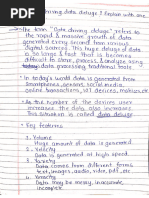 driving data deluge? Explain with one
The term "Data driving deluge" refers to
the rapid & massive growth of data
generated every second from various
digital sources. This huge deluge of data
is so large & fast that it becomes
difficult to store, process, & analyze using
data processing traditional tools.
In today's world data is generated from
smartphones, sensors, social media,
online transactions, IoT devices
As the number of the devices user
increases the data also increases.
This situation is called data deluge
Key features
1. Volume
Huge amount of data is generated
2. Velocity
Data is generated at high speed
3. Variety
Data comes from different formats
text, images, audio, video, etc.
4. Veracity
Data may be messy, inaccurate,
incomplete